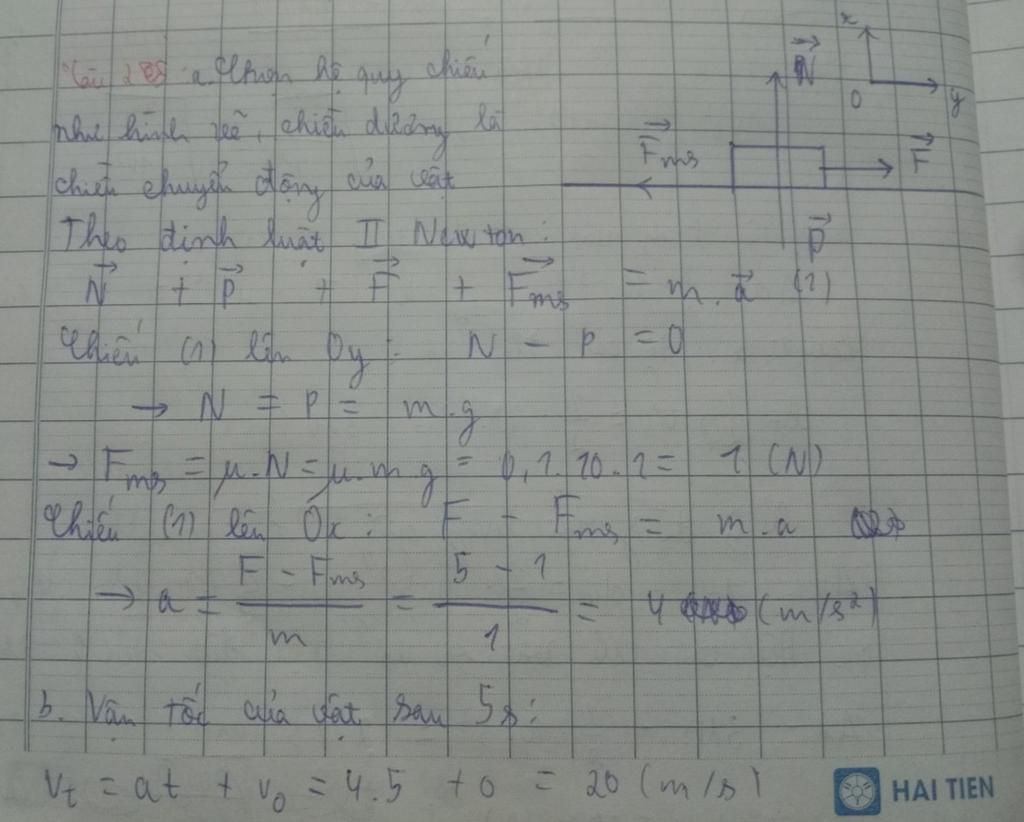 Câu 285: a. Chọn hệ quy chiếu
như hình vẽ, chiều dương là
chiều chuyển động của vật
Theo định luật II Newton:
N⃗ + P⃗ + F⃗ + F⃗ms = m.a⃗ (1)
Chiếu (1) lên Oy: N - P = 0
→ N = P = m.g
→ Fms = μ.N = μ.m.g = 0,1.10.1 = 1 (N)
Chiếu (1) lên Ox: F - Fms = m.a
→ a = (F - Fms)/m = (5 - 1)/1 = 4 (m/s²)
b. Vận tốc của vật sau 5s:
vt = at + v0 = 4.5 + 0 = 20 (m/s)
x
N⃗
O
y
F⃗ms
F⃗
P⃗
HAI TIEN